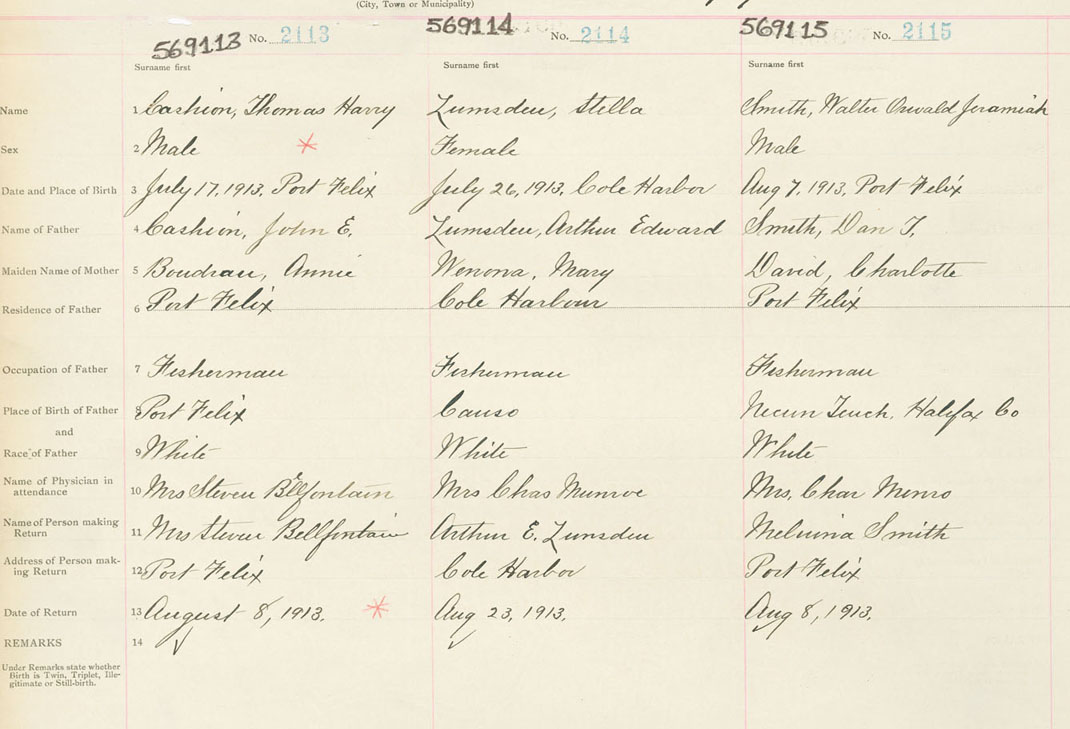 (City, Town or Municipality)
569113 No. 2113 569114 No. 2114 569115 No. 2115
Surname first Surname first Surname first
Name 1 Cashion, Thomas Harry Lumsden, Stella Smith, Walter Oswald Jeramiah
Sex 2 Male Female Male
Date and Place of Birth 3 July 17, 1913. Port Felix July 26, 1913. Cole Harbor Aug 7, 1913, Port Felix
Name of Father 4 Cashion, John E. Lumsden, Arthur Edward Smith, Dan J.
Maiden Name of Mother 5 Boudrau, Annie Wenona, Mary David, Charlotte
Residence of Father 6 Port Felix Cole Harbour Port Felix
Occupation of Father 7 Fisherman Fisherman Fisherman
Place of Birth of Father 8 Port Felix Canso Necun Teuch, Halifax Co
and
Race of Father 9 White White White
Name of Physician in
attendance 10 Mrs Steven Bellfontain Mrs Chas Munroe Mrs. Char Menro
Name of Person making
Return 11 Mrs Steven Bellfontain Arthur E. Lumsden Melvina Smith
Address of Person mak-
ing Return 12 Port Felix Cole Harbor Port Felix
Date of Return 13 August 8, 1913. Aug 23, 1913. Aug 8, 1913.
REMARKS 14
Under Remarks state whether
Birth is Twin, Triplet, Ille-
gitimate or Still-birth.